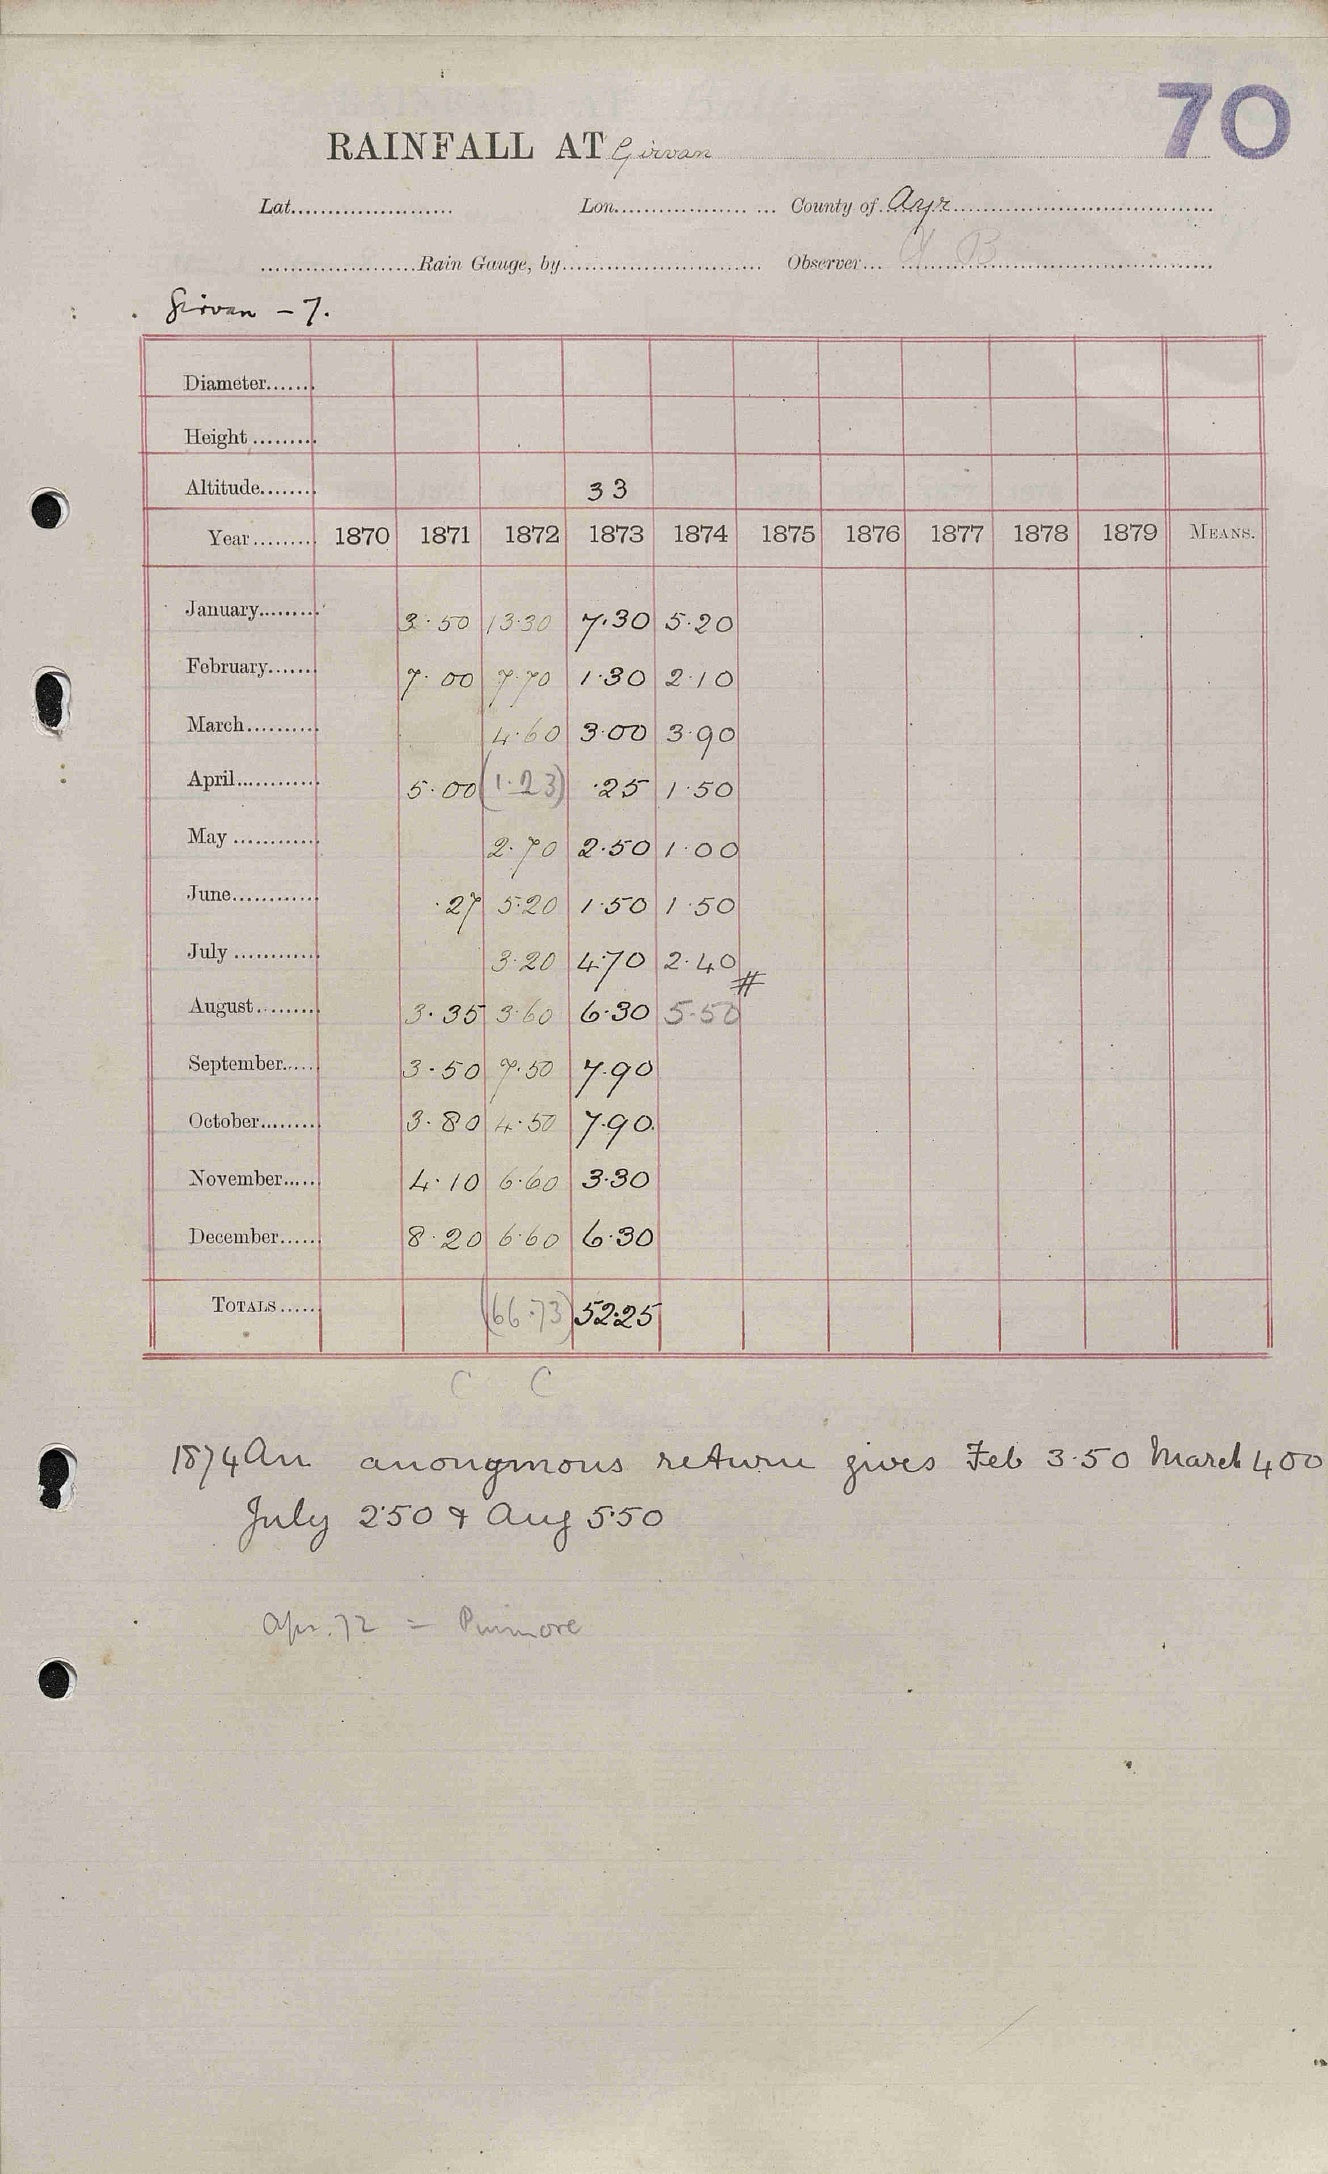 70
RAINFALL AT Girvan
Lat...................... Lon..................... County of Ayr
.....................Rain Gauge, by........................... Observer...
Girvan - 7.
Diameter.......
Height .........
Altitude........ 33
Year......... 1870 1871 1872 1873 1874 1875 1876 1877 1878 1879 MEANS.
January......... 3.50 13.30 7.30 5.20
February....... 7.00 7.70 1.30 2.10
March.......... 4.60 3.00 3.90
April............ 5.00 (1.23) .25 1.50
May ............ 2.70 2.50 1.00
June............ .27 5.20 1.50 1.50
July ............ 3.20 4.70 2.40
#
August......... 3.35 3.60 6.30 5.50
September...... 3.50 7.50 7.90
October......... 3.80 4.50 7.90.
November..... 4.10 6.60 3.30
December...... 8.20 6.60 6.30
TOTALS...... (66.73) 52.25
C C
1874 An anonymous return gives Feb 3.50 March 400
July 2.50 & Aug 5.50
Apr. 72 = Pinmore